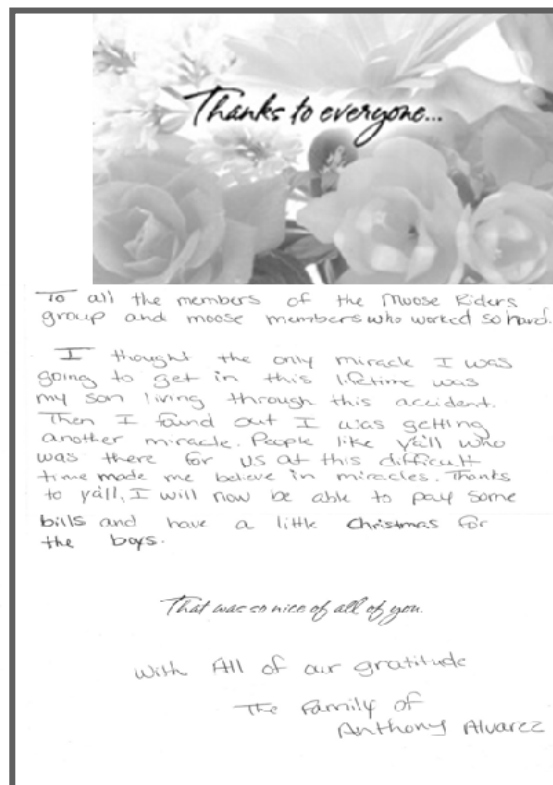 Thanks to everyone...
To all the members of the Moose Riders
group and moose members who worked so hard.
I thought the only miracle I was
going to get in this lifetime was
my son living through this accident.
Then I found out I was getting
another miracle. People like ya'll who
was there for us at this difficult
time made me believe in miracles. Thanks
to ya'll, I will now be able to pay some
bills and have a little Christmas for
the boys.
That was so nice of all of you.
With All of our gratitude
The Family of
Anthony Alvarez